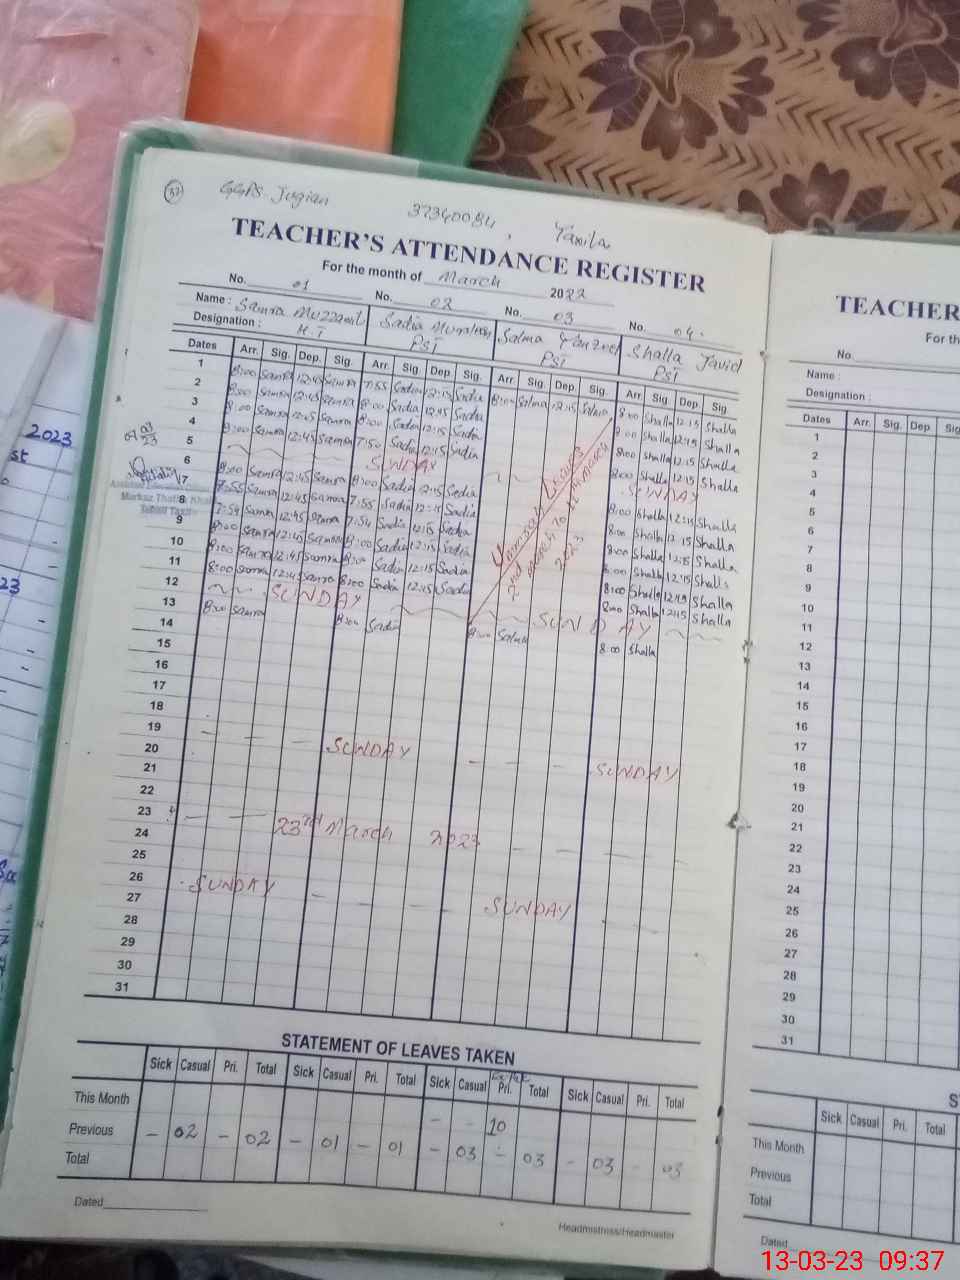 37 GGPS Jugian 37340084, Taxila
TEACHER'S ATTENDANCE REGISTER
For the month of March 2022
No. 01 No. 02 No. 03 No. 04.
Name : Samra Muzzamil Sadia Salma Shalla Javid
Designation : H.T PST PST PST
Dates Arr. Sig. Dep. Sig. Arr. Sig. Dep. Sig. Arr. Sig. Dep. Sig. Arr. Sig. Dep. Sig.
1 8:00 Samra 12:45 Samra 7:55 Sadia 12:15 Sadia 8:00 Salma 12:15 Salma 8:00 Shalla 12:15 Shalla
2 8:00 Samra 12:45 Samra 8:00 Sadia 12:45 Sadia 8:00 Shalla 12:15 Shalla
3 8:00 Samra 12:45 Samra 8:00 Sadia 12:15 Sadia 8:00 Shalla 12:15 Shalla
4 8:00 Samra 12:45 Samra 7:50 Sadia 12:15 Sadia 8:00 Shalla 12:15 Shalla
5 SUNDAY SUNDAY
6 8:00 Samra 12:45 Samra 8:00 Sadia 12:15 Sadia 8:00 Shalla 12:15 Shalla
7 7:55 Samra 12:45 Samra 7:55 Sadia 12:15 Sadia 8:00 Shalla 12 15 Shalla
8 7:54 Samra 12:45 Samra 7:54 Sadia 12:15 Sadia 8:00 Shalla 12:15 Shalla
9 8:00 Samra 12:45 Samra 8:00 Sadia 12:15 Sadia 8:00 Shalla 12:15 Shalla
10 8:00 Samra 12:45 Samra 8:00 Sadia 12:15 Sadia 8:00 Shalla 12:15 Shalla
11 8:00 Samra 12:45 Samra 8:00 Sadia 12:15 Sadia 8:00 Shalla 12:15 Shalla
12 SUNDAY SUNDAY
13 8:00 Samra 8:00 Sadia 8:00 Salma 8:00 Shalla
Ummrah Leaves
2nd March to 11th March
2023
14
15
16
17
18
19 SUNDAY SUNDAY
20
21
22
23 23rd March 2023
24
25
26 SUNDAY SUNDAY
27
28
29
30
31
STATEMENT OF LEAVES TAKEN
Sick Casual Pri. Total Sick Casual Pri. Total Sick Casual Pri. Total Sick Casual Pri. Total
This Month - - 10
Previous - 02 - 02 - 01 - 01 - 03 - 03 - 03 - 03
Total
Dated
Headmistress/Headmaster
TEACHER
For th
No.
Name :
Designation :
Dates Arr. Sig. Dep Sig
1
2
3
4
5
6
7
8
9
10
11
12
13
14
15
16
17
18
19
20
21
22
23
24
25
26
27
28
29
30
31
S
Sick Casual Pri. Total Sick
This Month
Previous
Total
Dated
2023
st
23
13-03-23 09:37